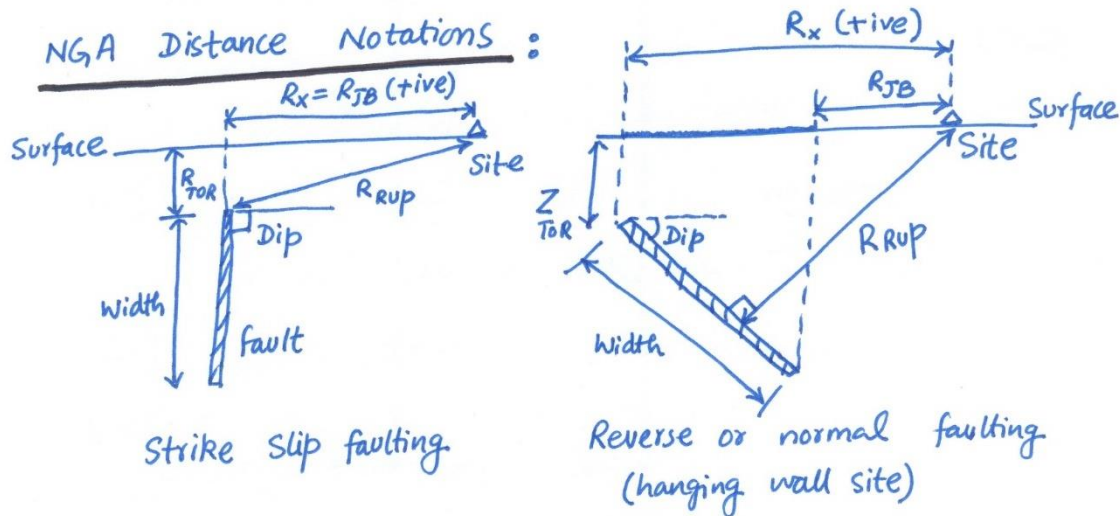 NGA Distance Notations :
Rx = RJB (+ive)
Surface
Site
RTOR
RRup
Dip
Width
fault
Strike Slip faulting
Rx (+ive)
RJB
Surface
Site
ZTOR
Dip
RRup
Width
Reverse or normal faulting
(hanging wall site)